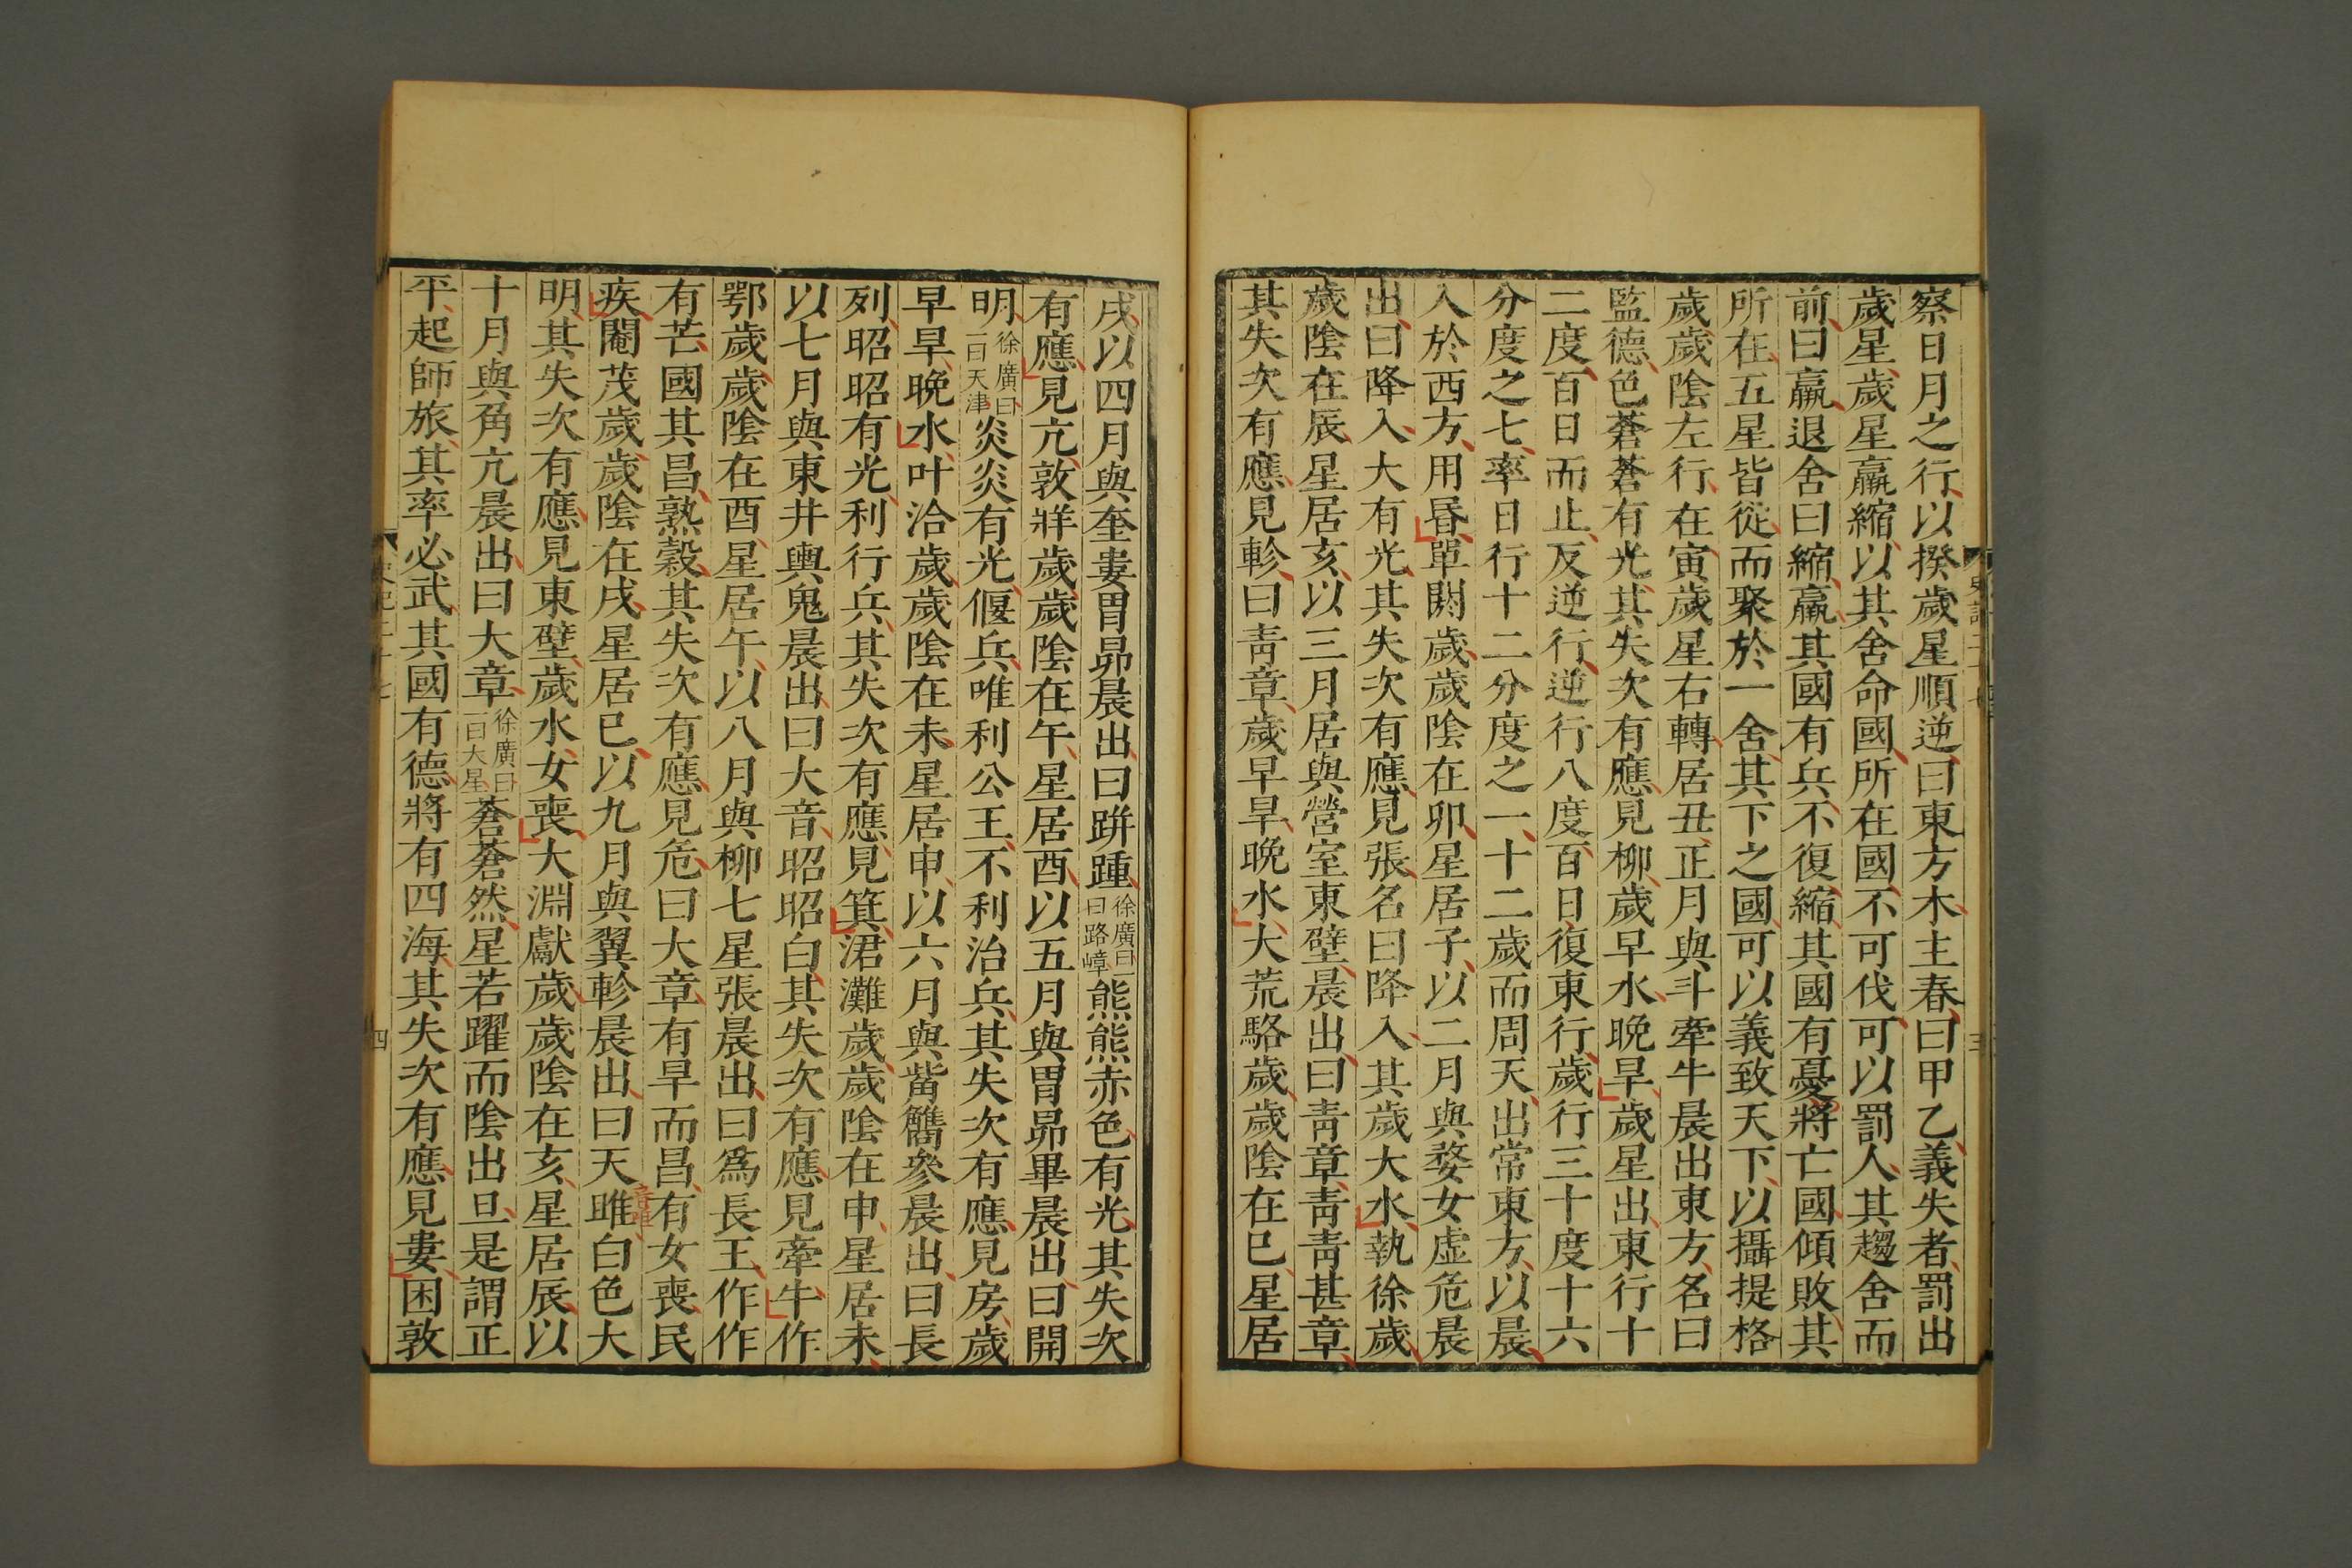 察日月之行以揆歲星順逆曰東方木主春曰甲乙義失者罰出
歲星歲星贏縮以其舍命國所在國不可伐可以罰人其趨舍而
前曰贏退舍曰縮贏其國有兵不復縮其國有憂將亡國傾敗其
所在五星皆從而聚於一舍其下之國可以義致天下以攝提格
歲歲陰左行在寅歲星右轉居丑正月與斗牽牛晨出東方名曰
監德色蒼蒼有光其失次有應見柳歲早水晚旱歲星出東行十
二度百日而止反逆行逆行八度百日復東行歲行三十度十六
分度之七率日行十二分度之一十二歲而周天出常東方以晨
入於西方用昬單閼歲歲陰在卯星居子以二月與婺女虛危晨
出曰降入大有光其失次有應見張名曰降入其歲大水執徐歲
歲陰在辰星居亥以三月居與營室東壁晨出曰靑章靑靑甚章
其失次有應見軫曰靑章歲早旱晚水大荒駱歲歲陰在巳星居
戌以四月與奎婁胃昴晨出曰跰踵徐廣曰一曰路嶂熊熊赤色有光其失次
有應見亢敦牂歲歲陰在午星居酉以五月與胃昴畢晨出曰開
明徐廣曰一曰天津炎炎有光偃兵唯利公王不利治兵其失次有應見房歲
早旱晚水叶洽歲歲陰在未星居申以六月與觜觿參晨出曰長
列昭昭有光利行兵其失次有應見箕涒灘歲歲陰在申星居未
以七月與東井輿鬼晨出曰大音昭昭白其失次有應見牽牛作
鄂歲歲陰在酉星居午以八月與柳七星張晨出曰爲長王作作
有芒國其昌熟穀其失次有應見危曰大章有旱而昌有女喪民
疾閹茂歲歲陰在戌星居巳以九月與翼軫晨出曰天睢白色大
明其失次有應見東壁歲水女喪大淵獻歲歲陰在亥星居辰以
十月與角亢晨出曰大章徐廣曰一曰大星蒼蒼然星若躍而陰出旦是謂正
平起師旅其率必武其國有德將有四海其失次有應見婁困敦
史記二十七
四